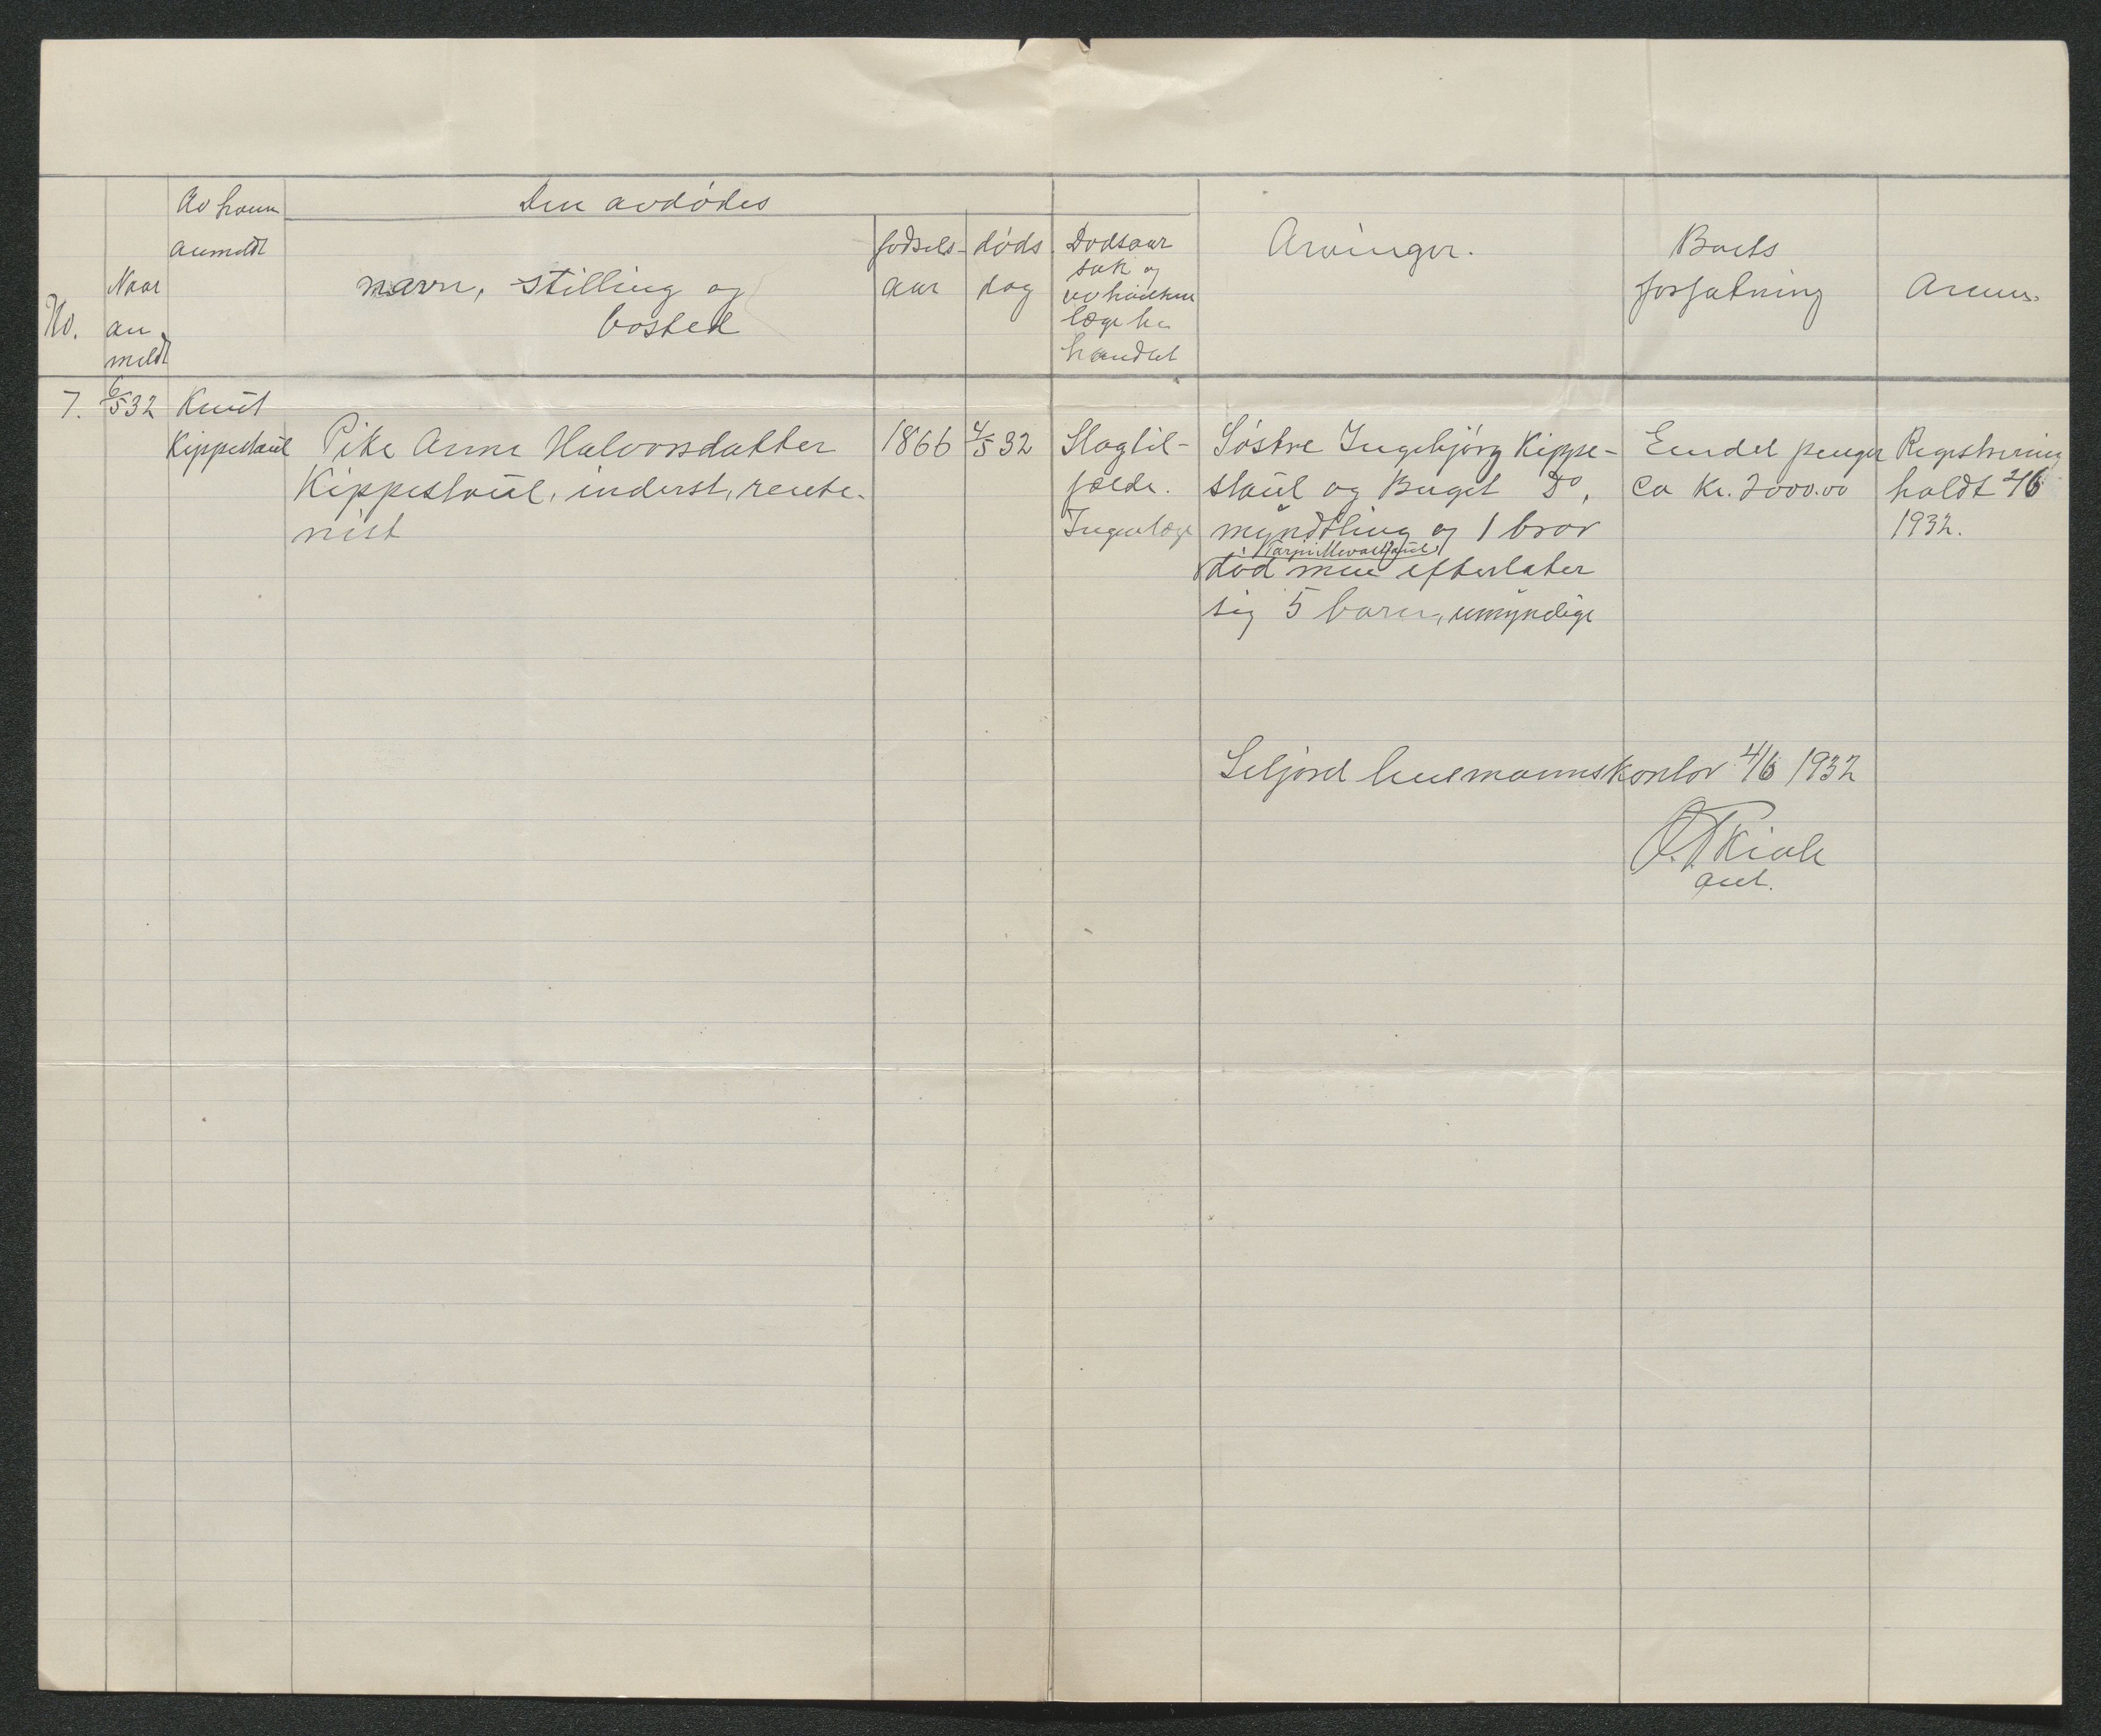 Den avdødes
No.
Naar
an
meldt
Av hvem
anmeldt
navn, stilling og
bosted
fødsels-
aar
døds
dag
Dødsaar
sak og
av hvilken
læge be
handlet
Arvinger.
Boets
forfatning
Anm.
7. 6/5 32 Knut
Kippestaul
Pike Anne Halvorsdatter
Kippestaul, inderst, rente-
nist
1866
4/5 32
Slagtil-
fælde.
Ingen læge
Søstre Ingebjørg Kippe-
staul og Birgit Do,
myndtling og 1 bror
død men efterlater
sig 5 barn, umyndige
Endel penger
Ca Kr. 2000.00
Registrering
holdt 4/6
1932.
Seljord lensmannskontor 4/6 1932